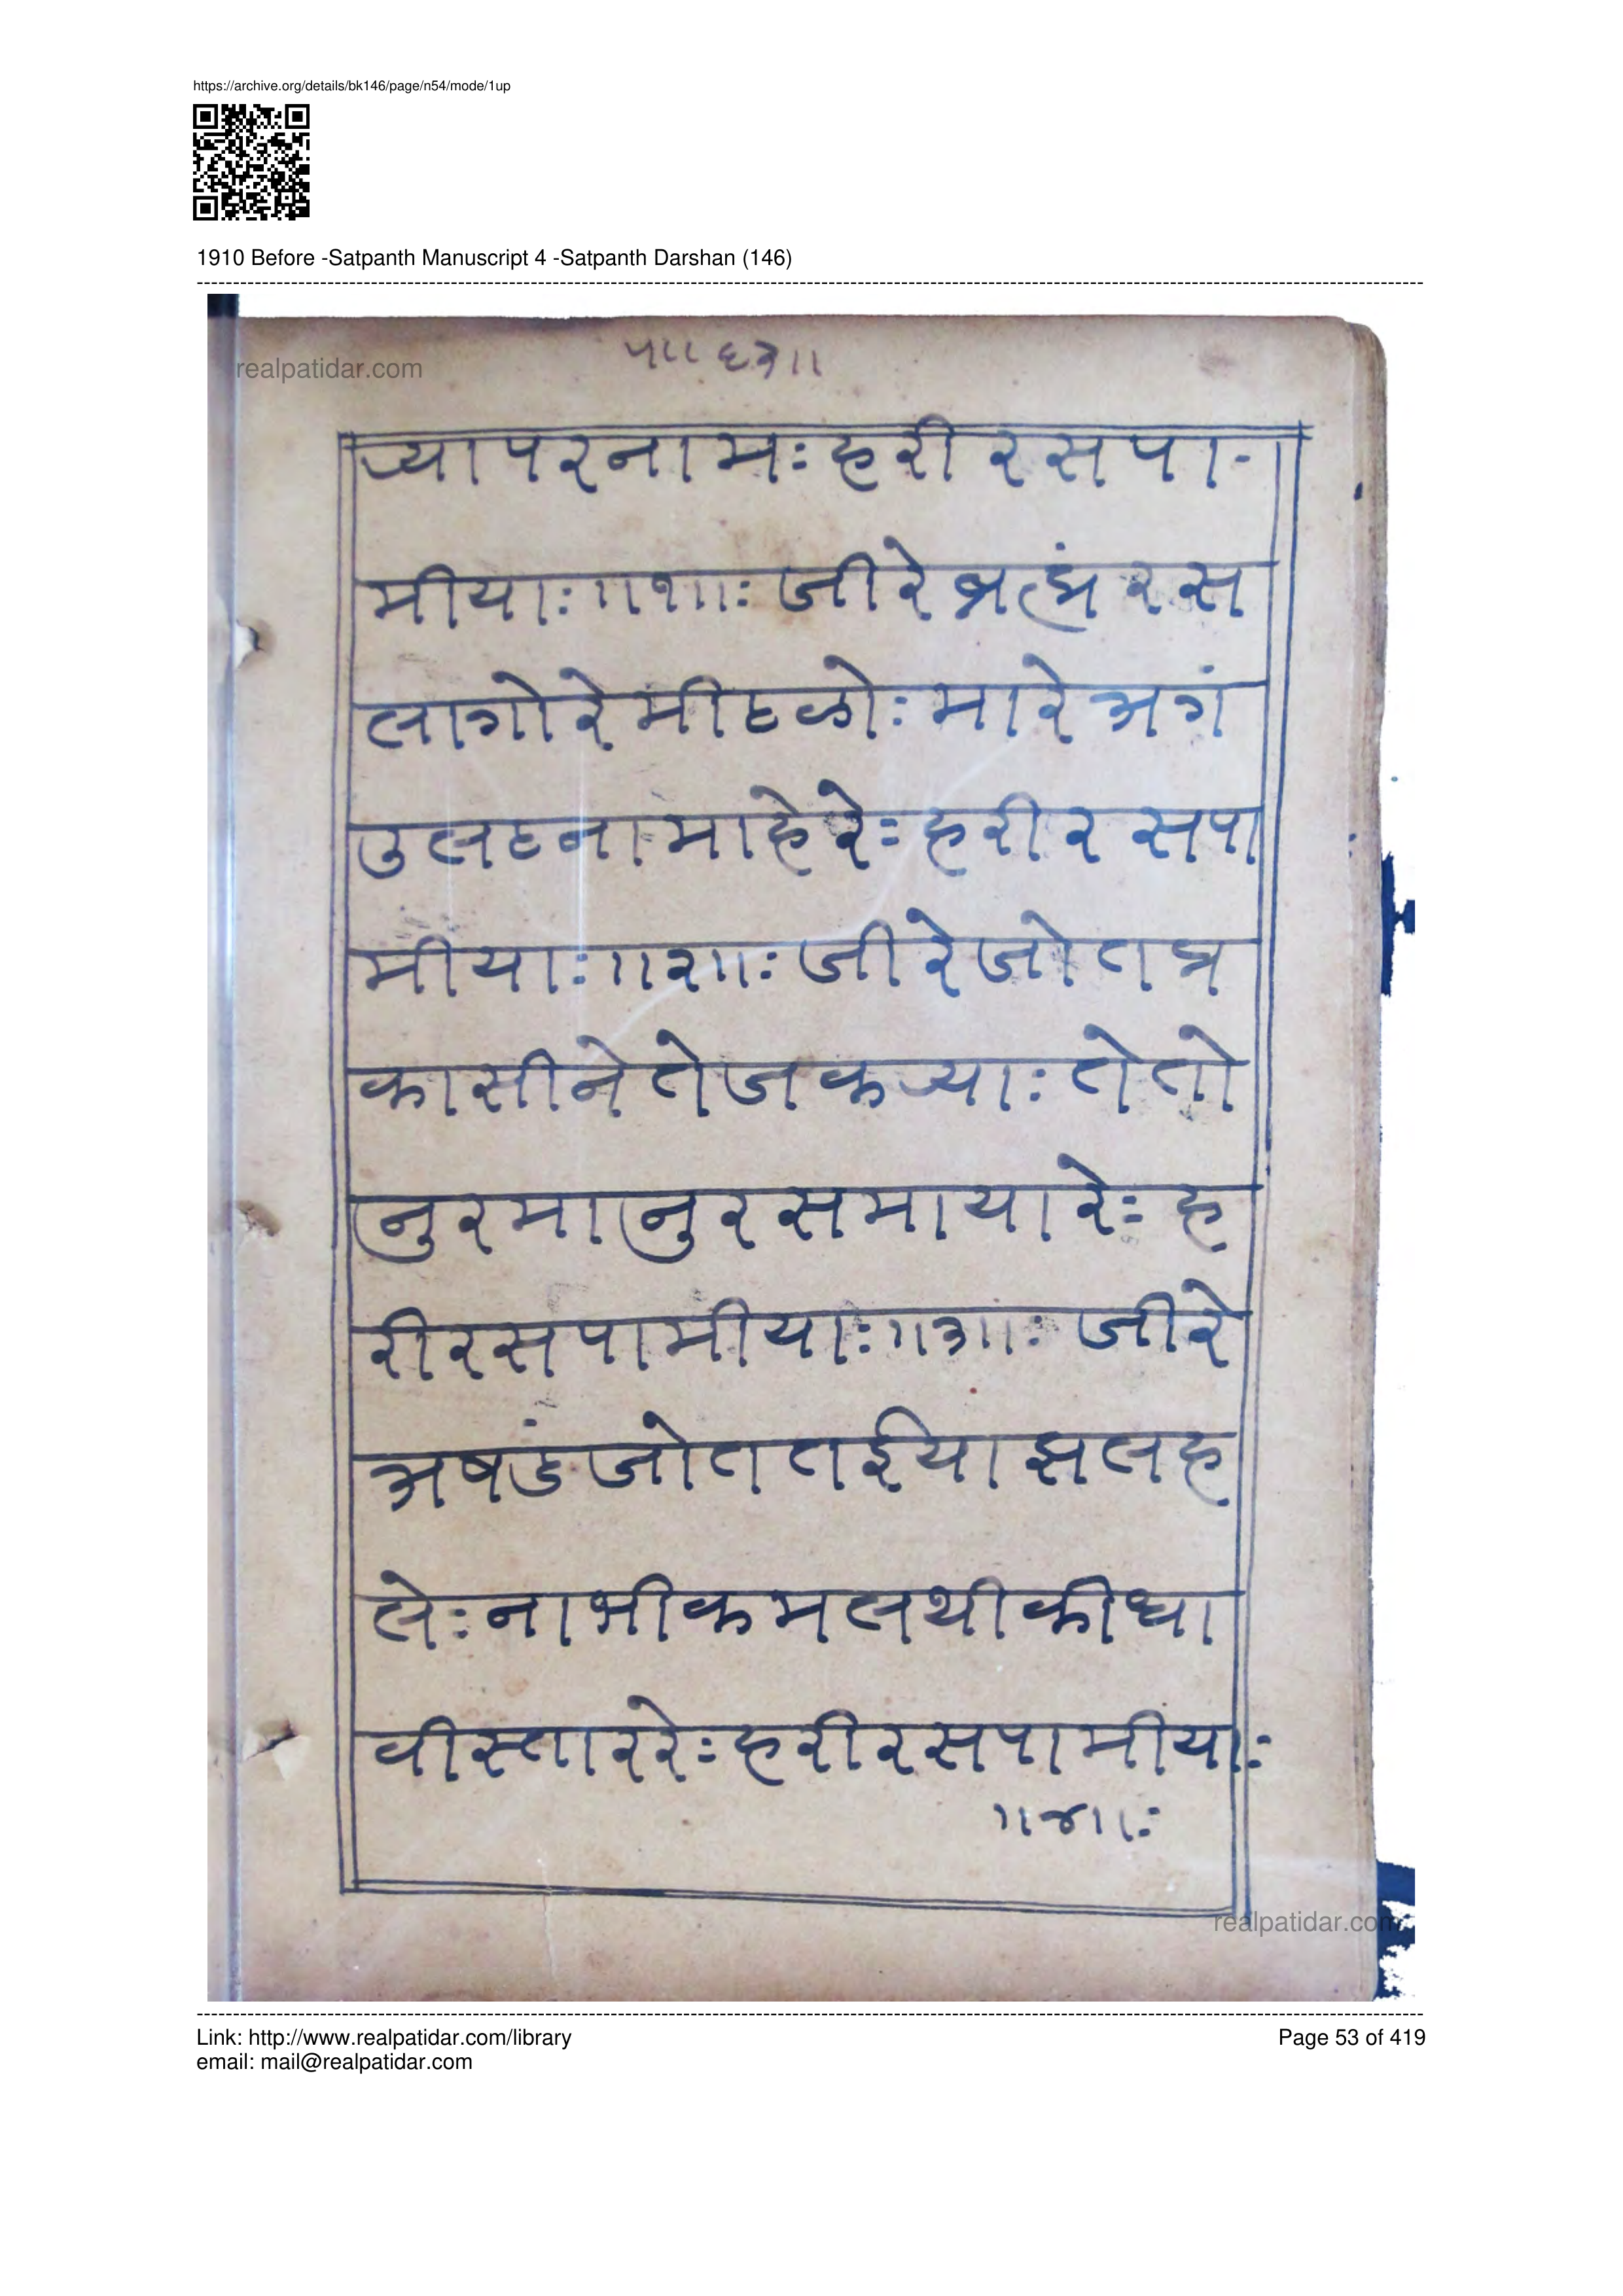 https://archive.org/details/bk146/page/n54/mode/1up
1910 Before -Satpanth Manuscript 4 -Satpanth Darshan (146)
realpatidar.com
५।। ६३।।
च्यापरनामः हरी रसपा-
मीयाः ।।१।।ः जीरे ब्रह्मं रस
लागोरे मीठळोः मारे अगं
उलटना माहेरेः हरी र सपा
मीयाः ।।२।।ः जीरे जोत प्र
कासीने तेज कच्याः ते तो
नुरमा नुर समाया रेः ह
रीरसपामीयाः ।।३।।ः जीरे
अषडं जोत तईया झलह
लेः नाभीकमलथी कीधा
वीस्ताररेः हरीरसपामीयाः
।।४।।ः
realpatidar.com
Link: http://www.realpatidar.com/library
Page 53 of 419
email: mail@realpatidar.com